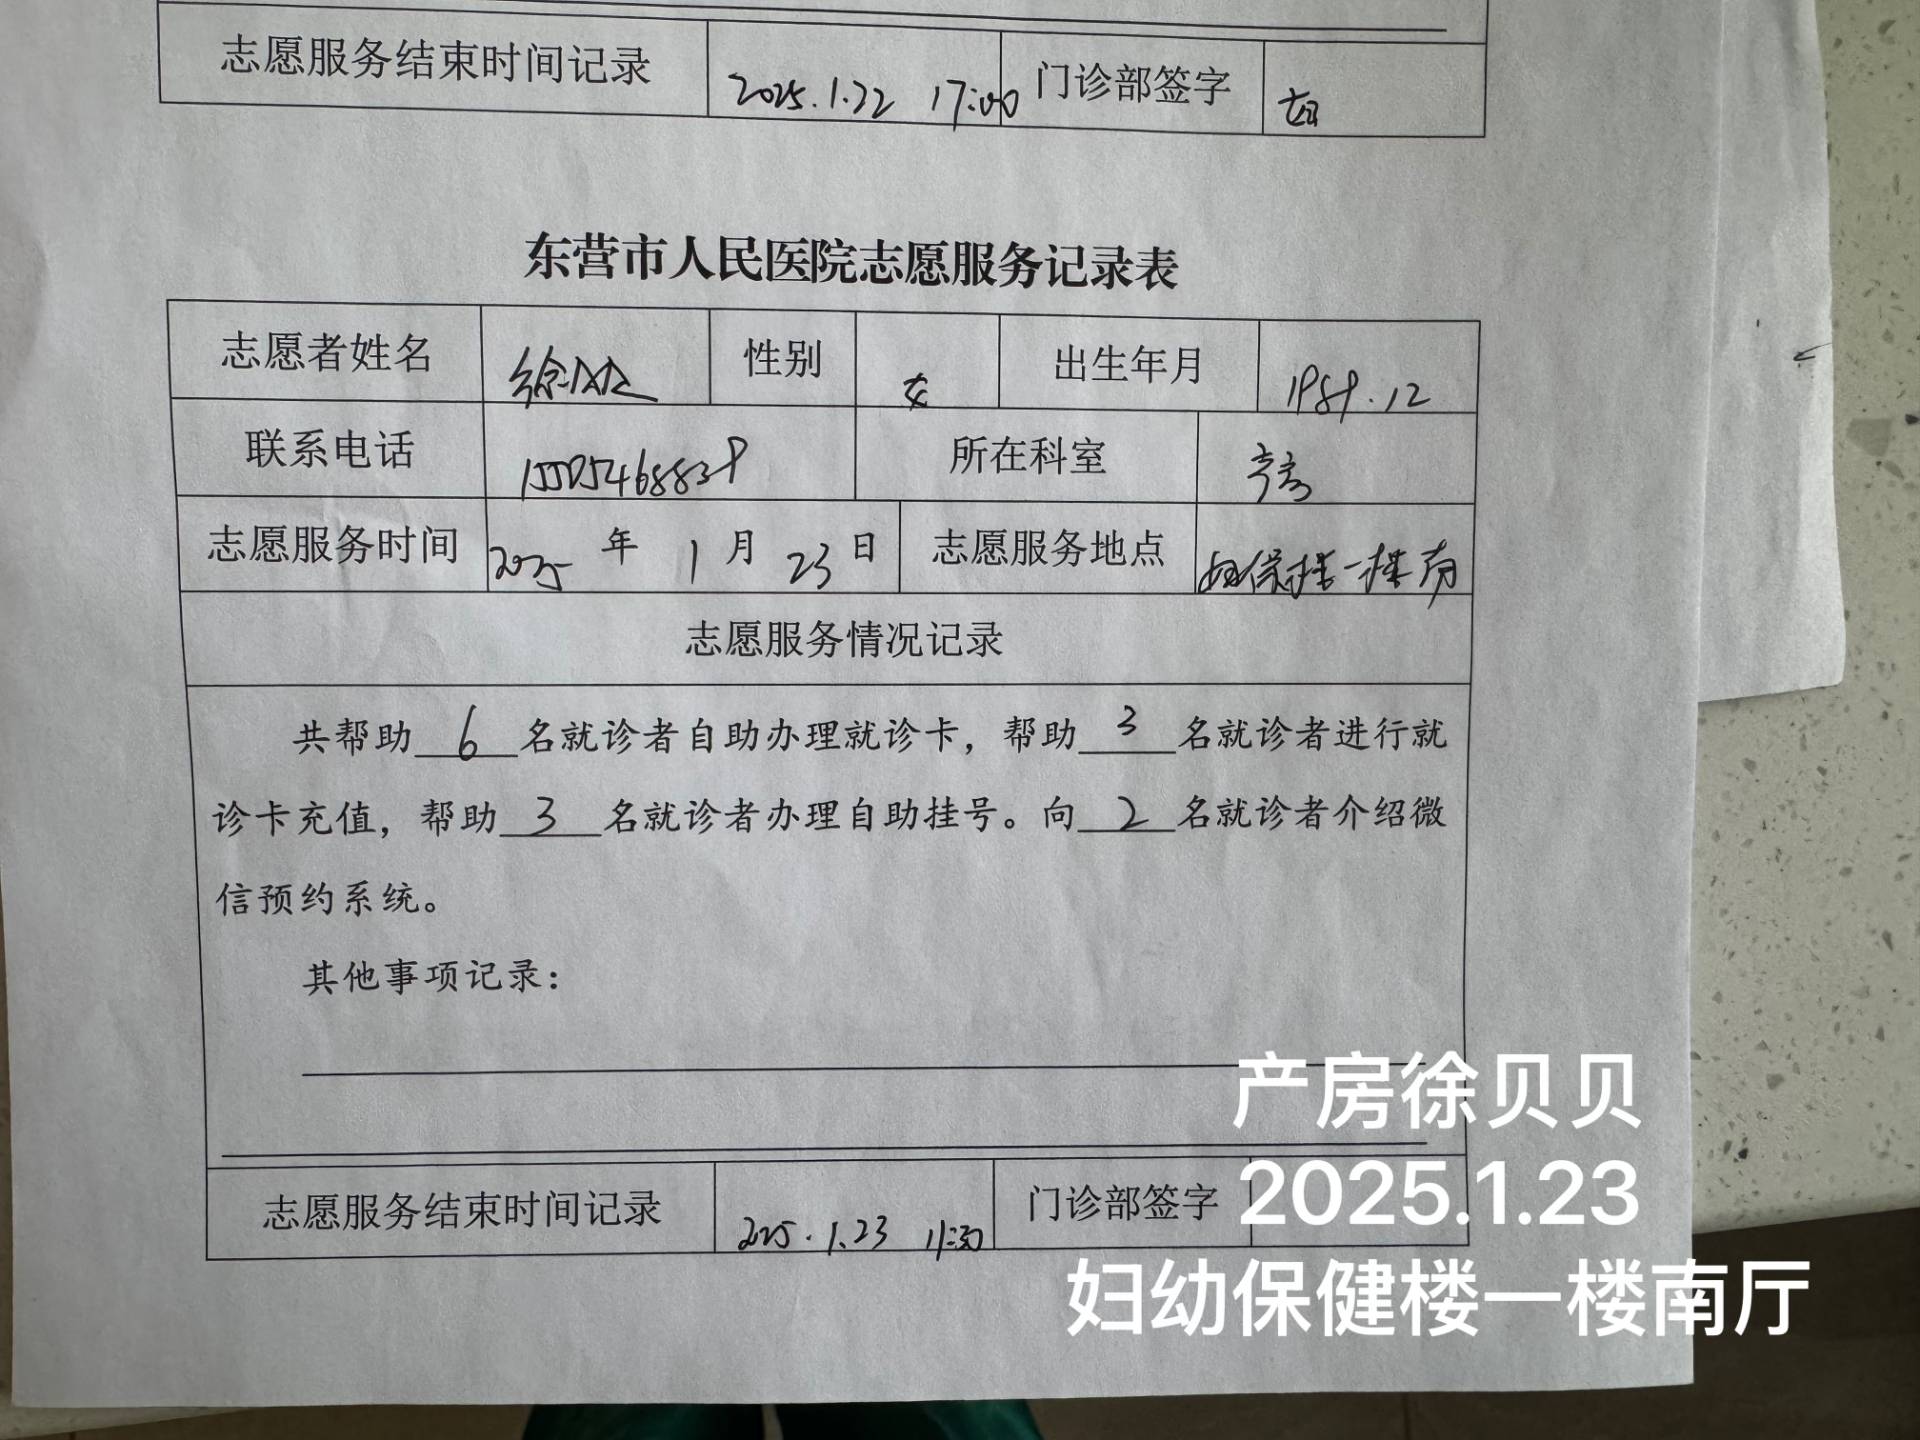 志愿服务结束时间记录 2025.1.22 17:00 门诊部签字
东营市人民医院志愿服务记录表
志愿者姓名 徐贝贝 性别 女 出生年月 1989.12
联系电话 所在科室 产房
志愿服务时间 2025年1月23日 志愿服务地点 妇保楼一楼南
志愿服务情况记录
共帮助 6 名就诊者自助办理就诊卡，帮助 3 名就诊者进行就
诊卡充值，帮助 3 名就诊者办理自助挂号。向 2 名就诊者介绍微
信预约系统。
其他事项记录：
志愿服务结束时间记录 2025.1.23 11:30 门诊部签字
产房徐贝贝
2025.1.23
妇幼保健楼一楼南厅